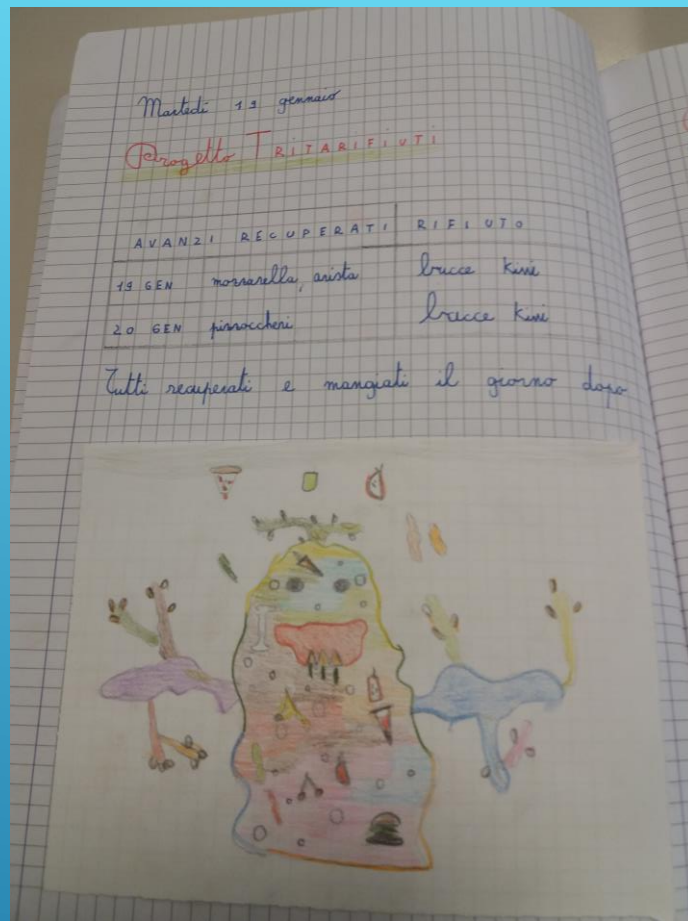 Martedì 19 gennaio
Progetto TRITARIFIUTI
AVANZI RECUPERATI RIFIUTO
19 GEN mozzarella, arista bucce kiwi
20 GEN pizzoccheri bucce kiwi
Tutti recuperati e mangiati il giorno dopo